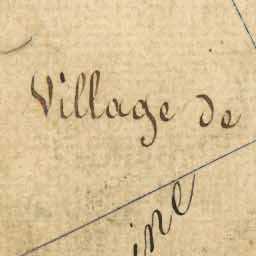 Village de
ine